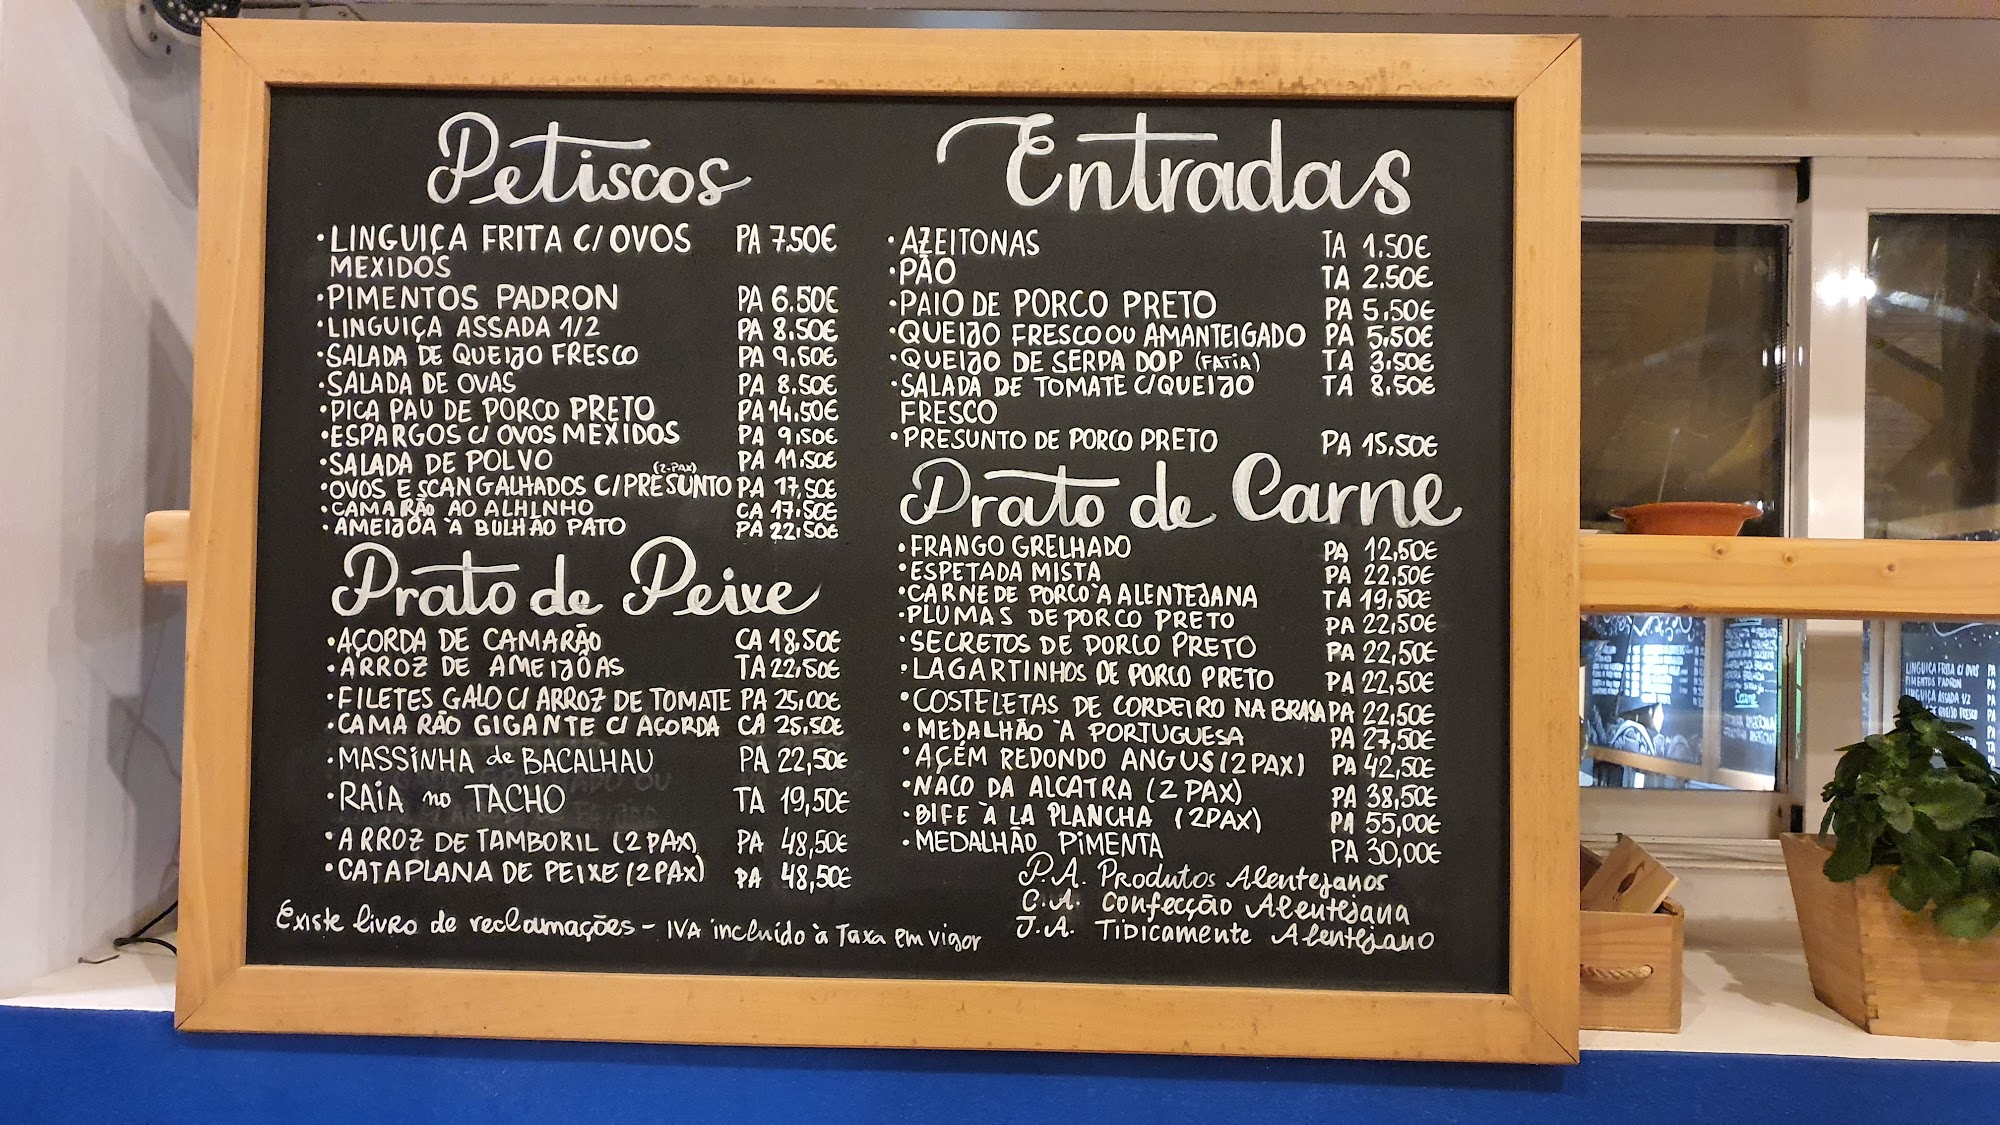 Petiscos
• LINGUIÇA FRITA C/ OVOS PA 7.50€
MEXIDOS
• PIMENTOS PADRON PA 6.50€
• LINGUIÇA ASSADA 1/2 PA 8.50€
• SALADA DE QUEIJO FRESCO PA 9.50€
• SALADA DE OVAS PA 8.50€
• PICA PAU DE PORCO PRETO PA 14.50€
• ESPARGOS C/ OVOS MEXIDOS PA 9.50€
• SALADA DE POLVO PA 11.50€
(2-PAX)
• OVOS ESCANGALHADOS C/ PRESUNTO PA 17,50€
• CAMARÃO AO ALHINHO CA 17.50€
• AMEIJOA À BULHÃO PATO PA 22,50€
Prato de Peixe
• AÇORDA DE CAMARÃO CA 18,50€
• ARROZ DE AMEIJÔAS TA 22,50€
• FILETES GALO C/ ARROZ DE TOMATE PA 25,00€
• CAMARÃO GIGANTE C/ AÇORDA CA 25,50€
• MASSINHA de BACALHAU PA 22,50€
• RAIA no TACHO TA 19,50€
• ARROZ DE TAMBORIL (2 PAX) PA 48,50€
• CATAPLANA DE PEIXE (2 PAX) PA 48,50€
Existe livro de reclamações - IVA incluído à Taxa em vigor
Entradas
• AZEITONAS TA 1.50€
• PÃO TA 2.50€
• PAIO DE PORCO PRETO PA 5.50€
• QUEIJO FRESCO OU AMANTEIGADO PA 5,50€
• QUEIJO DE SERPA DOP (FATIA) TA 3.50€
• SALADA DE TOMATE C/ QUEIJO TA 8.50€
FRESCO
• PRESUNTO DE PORCO PRETO PA 15.50€
Prato de Carne
• FRANGO GRELHADO PA 12,50€
• ESPETADA MISTA PA 22,50€
• CARNE DE PORCO À ALENTEJANA TA 19,50€
• PLUMAS DE PORCO PRETO PA 22,50€
• SECRETOS DE PORCO PRETO PA 22,50€
• LAGARTINHOS DE PORCO PRETO PA 22,50€
• COSTELETAS DE CORDEIRO NA BRASA PA 22,50€
• MEDALHÃO À PORTUGUESA PA 27,50€
• AÇÉM REDONDO ANGUS (2 PAX) PA 42,50€
• NACO DA ALCATRA (2 PAX) PA 38,50€
• BIFE À LA PLANCHA (2PAX) PA 55,00€
• MEDALHÃO PIMENTA PA 30,00€
P.A. Produtos Alentejanos
C.A. Confecção Alentejana
T.A. Tipicamente Alentejano
LINGUIÇA FRITA C/ OVOS
PIMENTOS PADRON
LINGUIÇA ASSADA 1/2